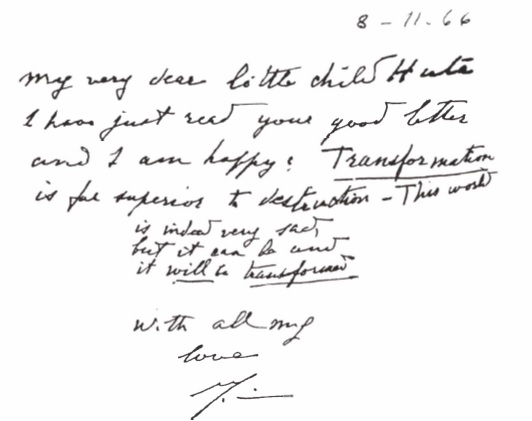 8-11-66
My very dear little child Huta
I have just recd your good letter
and I am happy: Transformation
is far superior to destruction - This world
is indeed very sad,
but it can be and
it will be transformed
With all my
love